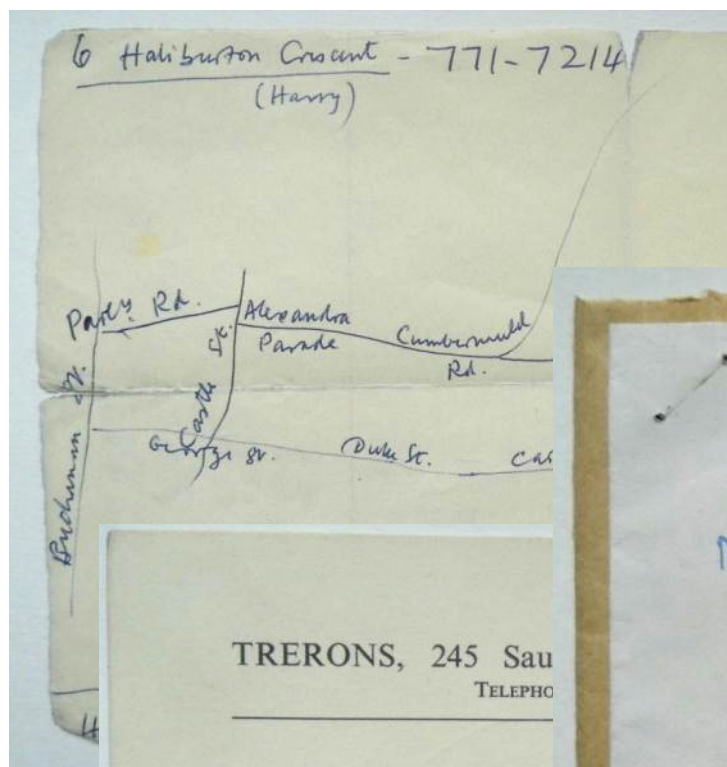 6 Haliburton Crescent - 771-7214
(Harry)
Parly. Rd.
Alexandra
Parade
Cumbernauld
Rd.
Castle St.
Buchanan St.
George St.
Duke St.
Cas
H
TRERONS, 245 Sau
TELEPHO